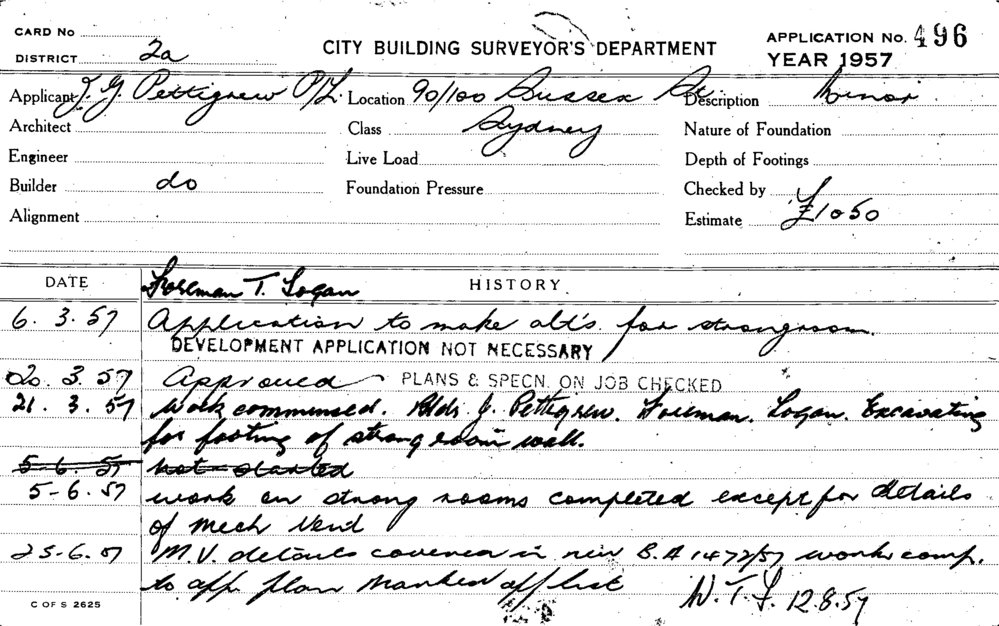 CARD No
DISTRICT 2a
CITY BUILDING SURVEYOR'S DEPARTMENT
APPLICATION No. 496
YEAR 1957
Applicant J. G. Pettigrew P/L. Location 90/100 Sussex St Description Minor
Architect Class Sydney Nature of Foundation
Engineer Live Load Depth of Footings
Builder do Foundation Pressure Checked by
Alignment Estimate £1050
DATE Foreman T. Logan HISTORY
6. 3. 57 Application to make alt's. for strongroom.
DEVELOPMENT APPLICATION NOT NECESSARY
20. 3. 57 Approved PLANS & SPECN. ON JOB CHECKED
21. 3. 57 Work commensed. Bldr J. Pettigrew. Foreman. Logan. Excavating
for footing of strong room wall.
5-6. 57 not started
5-6. 57 work on strong rooms completed except for details
of Mech Vent
25-6. 57 M.V. details covered in new B.A 1472/57 work comp.
to app. plan Marked off list W.T.F. 12.8.57
C OF S 2625